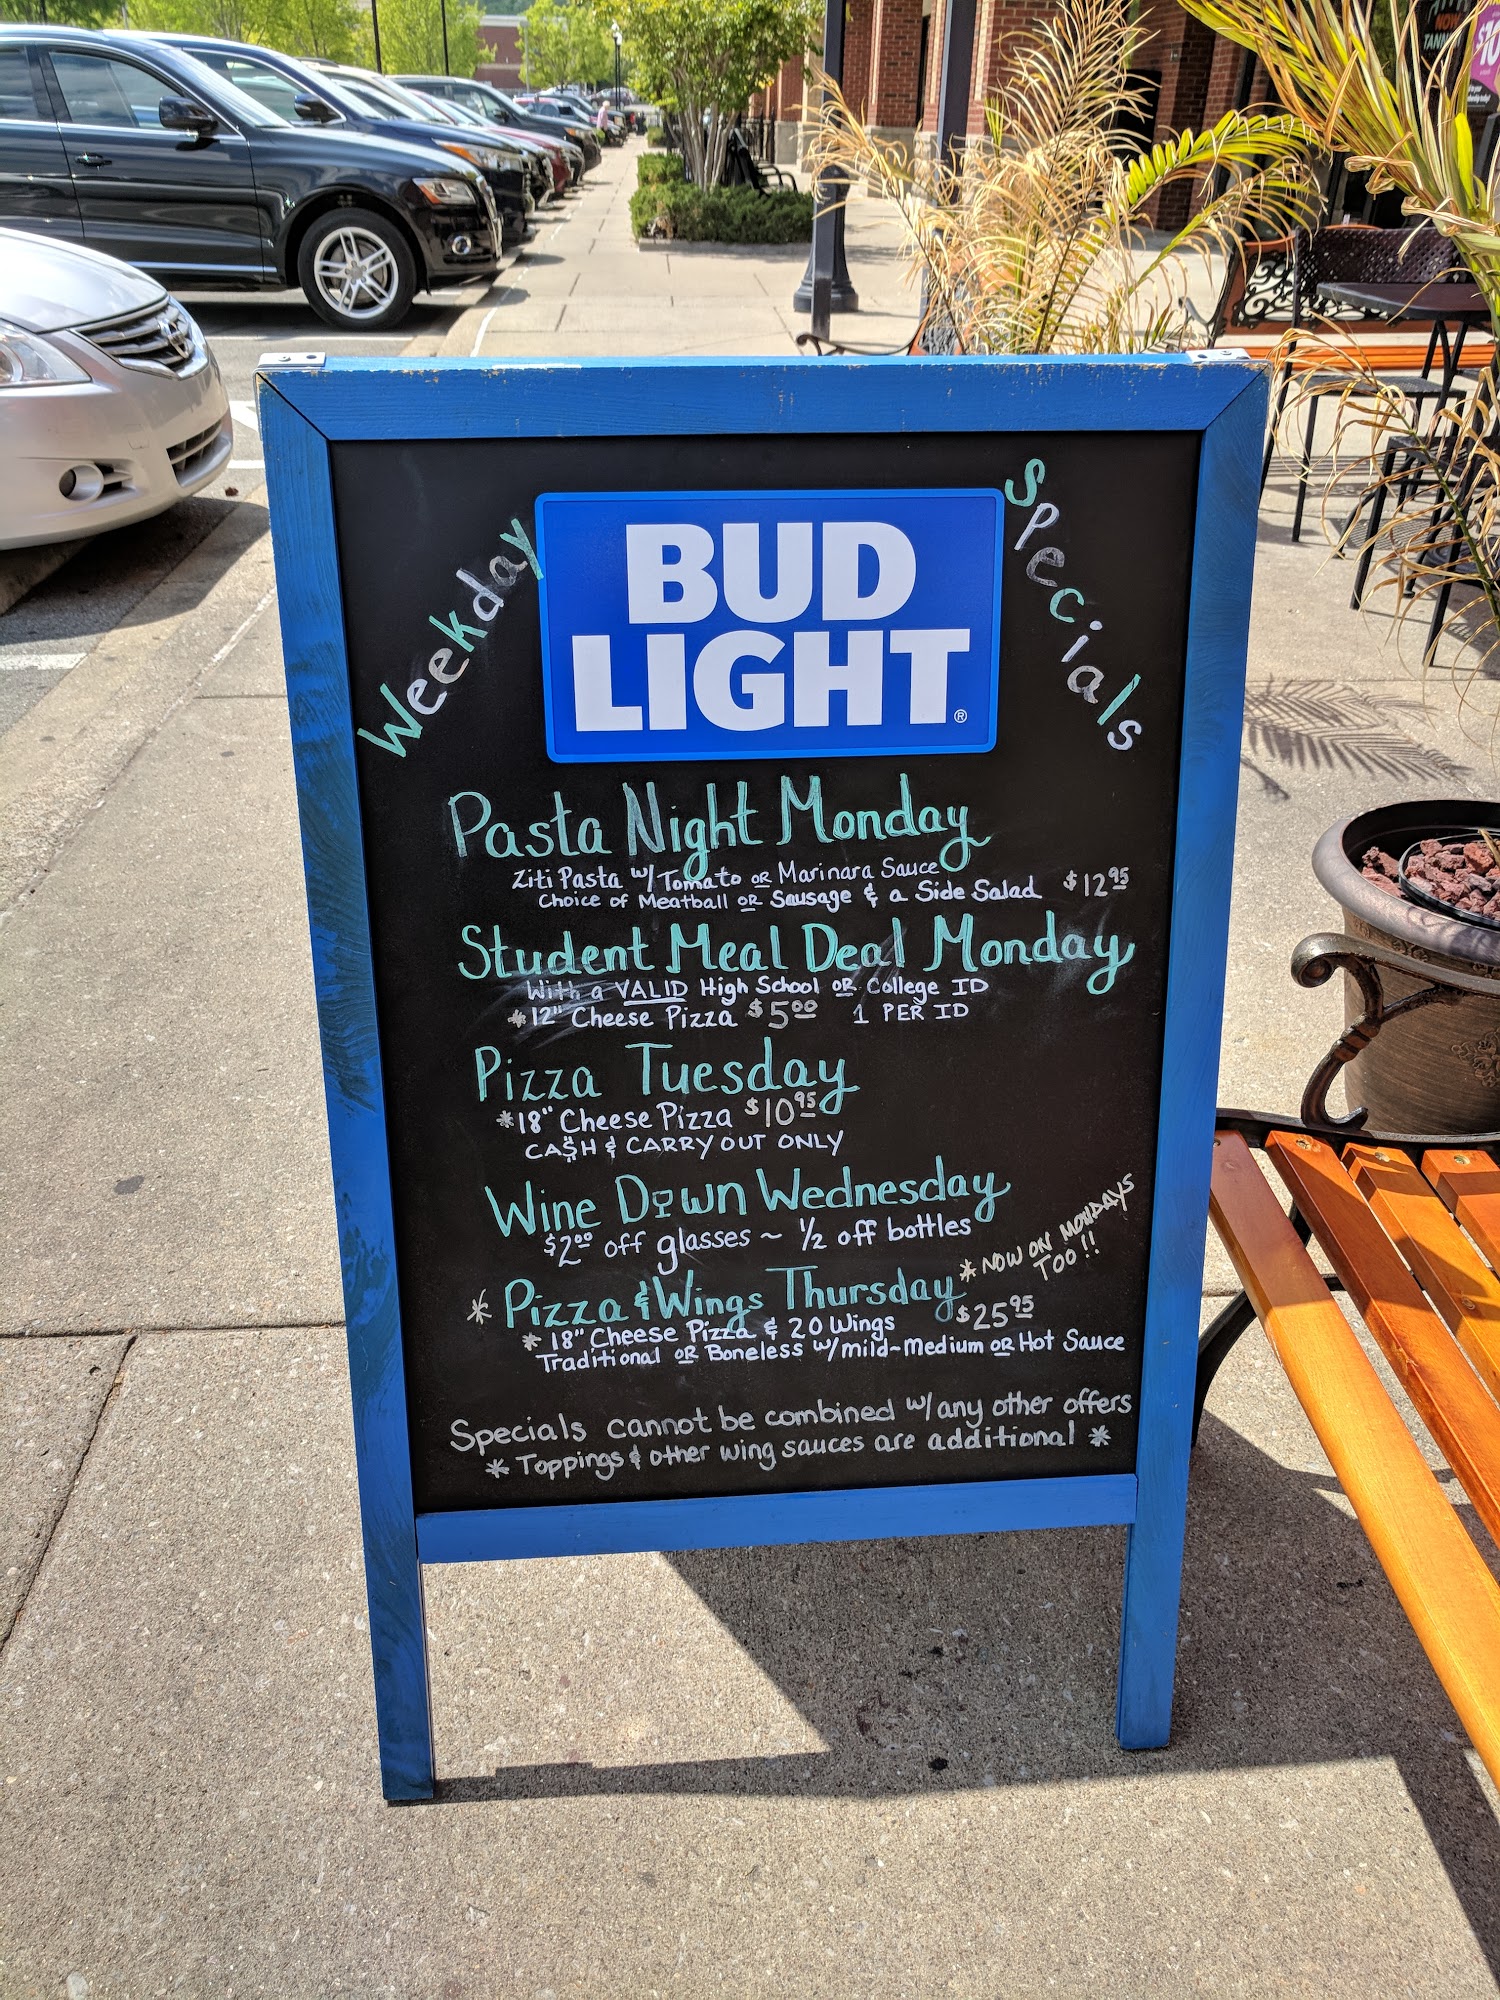 Weekday
Specials
BUD
LIGHT®
Pasta Night Monday
Ziti Pasta w/ Tomato OR Marinara Sauce
Choice of Meatball OR Sausage & a Side Salad $12.95
Student Meal Deal Monday
With a VALID High School OR College ID
*12" Cheese Pizza $5.00 1 PER ID
Pizza Tuesday
*18" Cheese Pizza $10.95
CA$H & CARRY OUT ONLY
Wine Down Wednesday
$2.00 off glasses ~ 1/2 off bottles
* NOW ON MONDAYS
TOO!!
* Pizza & Wings Thursday
* 18" Cheese Pizza & 20 Wings $25.95
Traditional OR Boneless w/ mild-Medium OR Hot Sauce
Specials cannot be combined w/ any other offers
* Toppings & other wing sauces are additional *
NOW